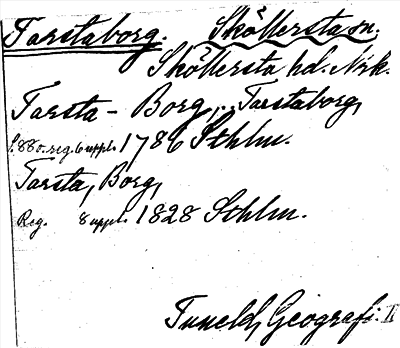 Tarstaborg. Sköllersta sn.
Sköllersta hd. Nrk.
Tarsta - Borg, .. Tarstaborg,
s. 88 o. reg. 6 uppl. 1786 Sthlm.
Tarsta, Borg,
Reg. 8 uppl. 1828 Sthlm.
Tuneld, Geografi: II